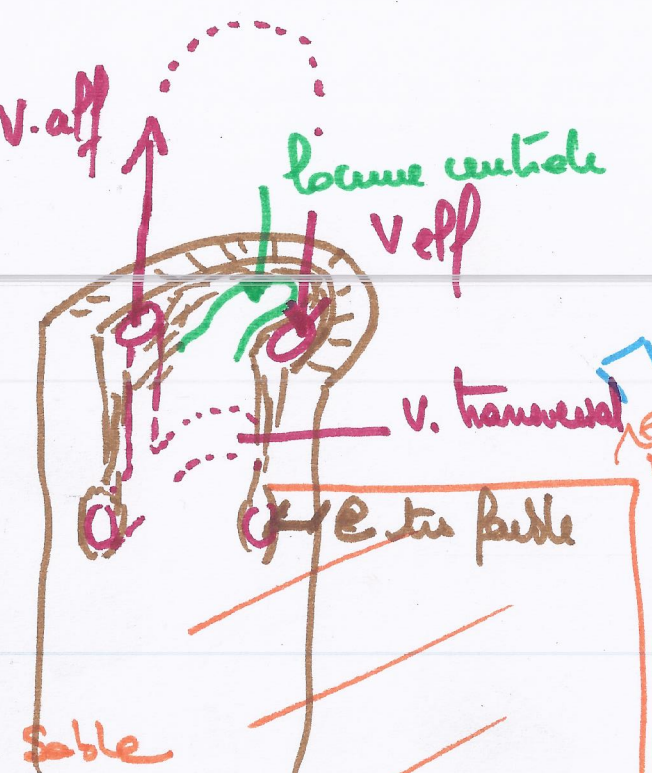 V. aff
lacune centrale
V eff
V. transversal
e très faible
Sable